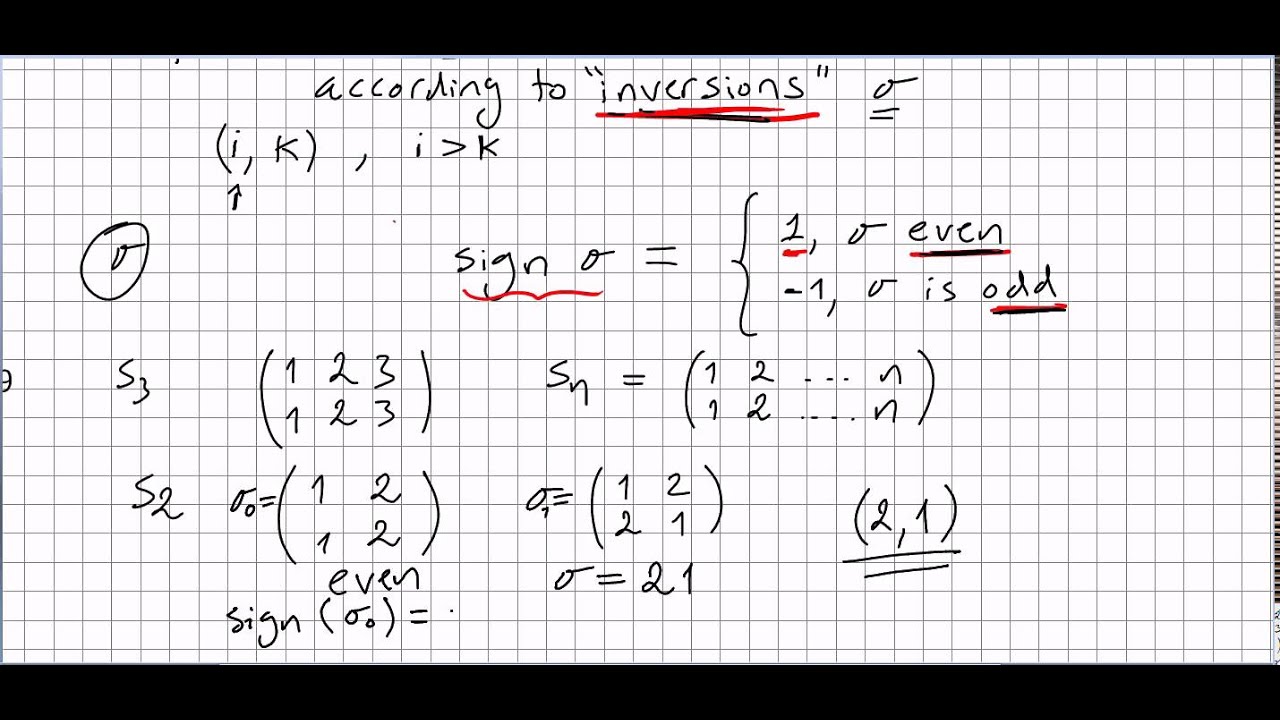 according to "inversions" σ
(i, k) , i > k
↑
σ sign σ = { 1, σ even
-1, σ is odd
S3 (1 2 3 Sn = (1 2 .... n
1 2 3) 1 2 ..... n)
S2 σ0 = (1 2 σ1 = (1 2 (2,1)
1 2) 2 1)
even σ = 21
sign (σ0) =